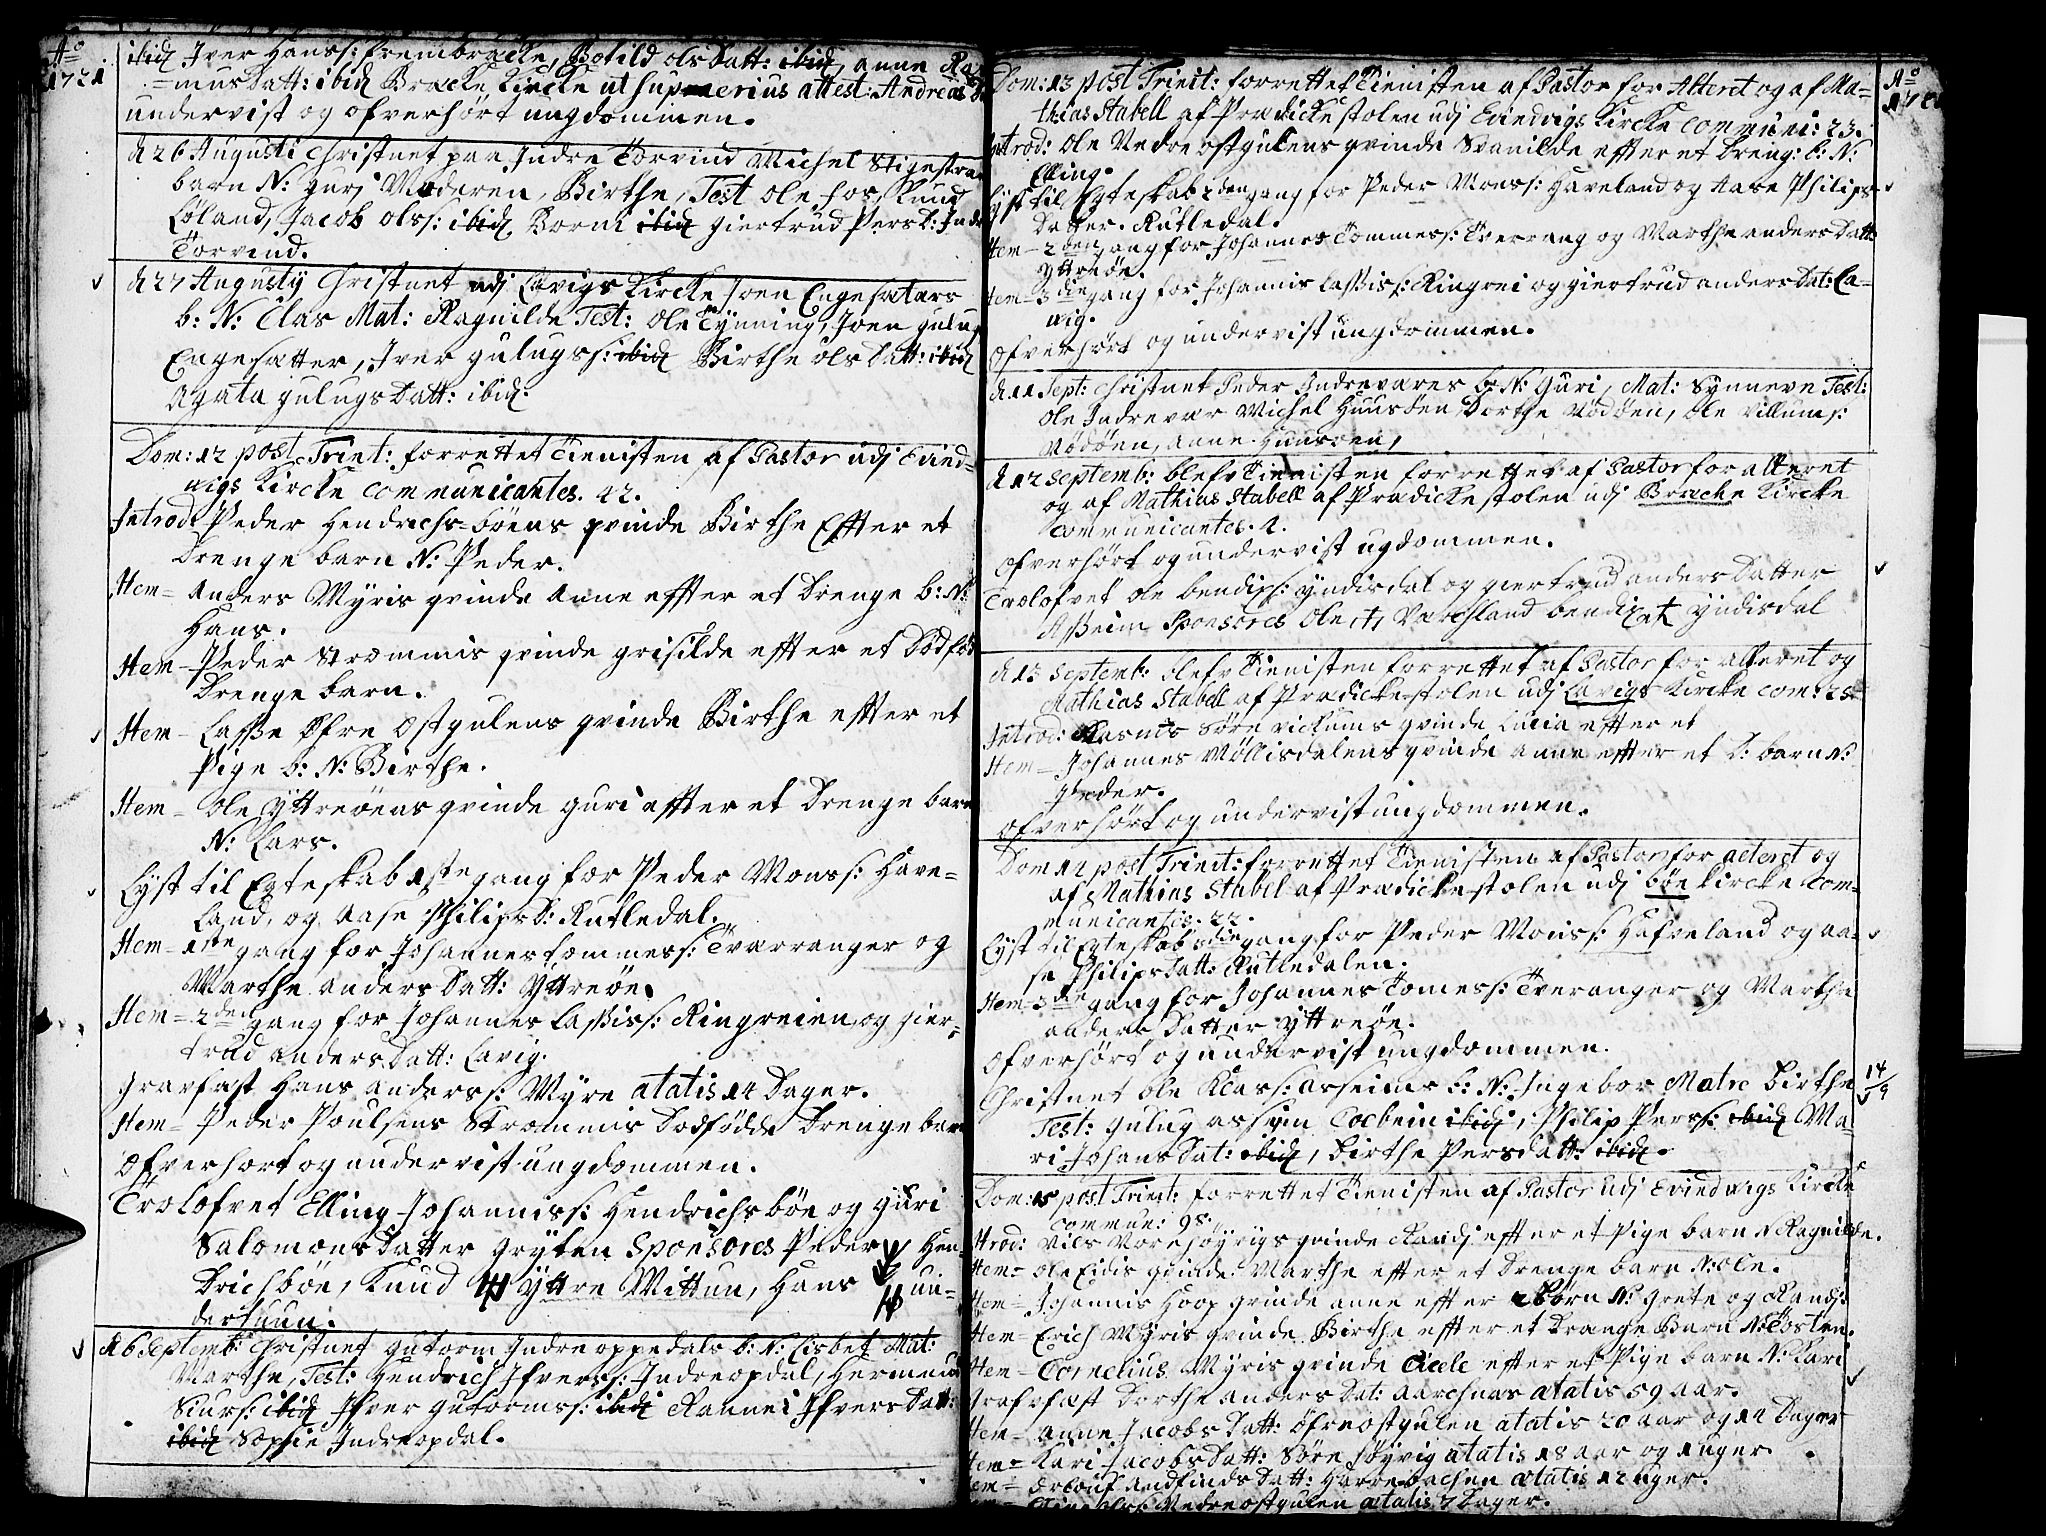 Ao
1721
ibid Iver Hanss: frembracke, Botild olsdatt: ibid, anne Ras
=musdatt: ibid Bracke Kircke ut superius attest: Andreas
undervist og ofverhört ungdommen.
d 26 Augusti Christnet paa Indre Torvind Michel Stigestra
barn N: guri Moderen, Birthe, Test ole hos, Knud
Løland, Jacob olss: ibid Borni ibid giertrud Persd: Indr
Torvind.
d 27 Augusty Christnet udj Lavigs Kircke Joen Engesætters
b: N: Elas Mat: Ragnilde Test: ole Tynning, Joen gulug
Engesætter, Iver gulugss: ibid Birthe olsdatt: ibid
Agata gulugsdatt: ibid.
Dom: 12 post Trinit: forrettet Tienisten af Pastor udj Evind-
vigs Kircke communicantes. 42.
Introd: Peder Hendrichsbøens qvinde Birthe Effter et
Drenge barn N: Peder.
Item= anders Myris qvinde Anne effter et Drenge b: N:
Hans.
Item- Peder Strommis qvinde grisilde effter et Dødfød
Drenge barn.
Item- Lasse Øfre Ostgulens qvinde Birthe effter et
Pige b: N: Birthe.
Item= ole Yttreöens qvinde guri effter et Drenge barn
N: Lars.
Lyst til Egteskab 1ste gang for Peder Monss: Have=
land, og Aase Philipsd: Rutledal.
Item- 1ste gang for Johannes Tommess: Tvarranger og
Marthe andersdatt: Yttreöe.
Item= 2den gang for Johannes Lassiss: Ringreien og gier=
trud andersdatt: Lavig.
Gravfæst Hans anderss: Myre ætatis 14 Dager.
Item= Peder Poulsens Strommis Dodfödde Drenge barn
Ofverhort og undervist ungdommen.
Trolofvet Elling Johanniss: Hendrichsböe og guri
Salomonsdatter gryten Sponsores Peder Hen=
drichböe, Knud Yttre Mittun, Hans un=
dertuun.
d 6 Septemb: Christnet gutorm Indreoppedals b: N: Lisbet Mat:
Marthe, Test: Hendrich Ifverss: Indreopdal, Hermund
Siurs: ibid Ifver gutormss: ibid Rannei Ifversdatt:
ibid Sophie Indreopdal.
Ao
Dom: 13 post Trinit: forrettet Tienisten af Pastor for Alteret og af Ma=
thias Stabell af Prædickestolen udj Evindvigs Kircke communi: 23.
Introd: ole Nedre ostgulens qvinde Svanilde effter et Dreng: b: N:
Elling.
Lyst til Egteskab 2den gang for Peder Monss: Haveland og Aase Philips
Datter. Rutledal.
Item- 2den gang for Johannes Tommess: Tverrang og Marthe andersdatt:
Yttreöe.
Item= 3die gang for Johannis Lassiss: Ringrei og giertrud andersdat: La=
vig.
ofverhört og undervist ungdommen.
d 11 Sept: Christnet Peder Indrevares b: N: Guri, Mat: Synneve Test:
ole Indrevær Michel Huusöen Dorthe Nödöen, ole Villums:
Nödöen, anne Huusöen,
d 12 Septemb: blefv Tienisten forrettet af Pastor for alteret
og af Mathias Stabell af Prædickestolen udj Bracke Kircke
communicantes. 1.
Ofverhört og undervist ugdommen.
Trolofvet ole bendixs: yndisdal og giertrud andersdatter
Asseim Sponsores ole Varchland bendix yndisdal
d 13 Septemb: blefv Tienisten forrettet af Pastor for alteret og
Mathias Stabell af Prædickestolen udj Lavigs Kircke com: 25
Introd: Rasmus Söre vickums qvinde Lucia effter et
Item= Johannes Möllisdalens qvinde anne effter et d: barn N:
Peder.
Ofverhört og undervist ungdommen.
Dom 14 post Trinit: forrettet Tienisten af Pastor for alteret og
af Mathias Stabel af Prædickestolen udj böe Kircke com-
municantis. 22.
Lyst til Egteskab 3die gang for Peder Monss: Hafveland og aa=
se Philipsdatt: Rutledalen.
Item= 3die gang for Johannes Tomess: Tveranger og Marthe
anders Datter Yttreöe.
Ofverhört og undervist ungdommen.
Christnet ole Klass: asseims b: N: Ingebor Matre birthe 14/9
Test: gulug asseim Torbein ibid, Philip Perss: ibid Ma=
ri Johansdat: ibid, birthe Persdatt: ibid.
Dom: 15 post Trinit: forrettet Tienisten af Pastor udj Evindvigs Kircke
commun: 98.
Introd: Niels Nörehöyvigs qvinde Randj effter et Pige barn N Ragnilde.
Item= ole Eidis qvinde Marthe effter et Drenge barn N: ole.
Item= Johannis Hoop qvinde anne effter 2 børn N: grete og Randj:
Item= Erich Myris qvinde Birthe effter et Drenge Barn N: Tosten.
Item= Cornelius Myris qvinde Cicele effter et Pige barn N: Kari
Grafvfæst Dorthe andersdat: aarehuus ætatis 59 aar.
Item= anne Jacobsdatt: Öfreostgulen ætatis 20 aar og 14 Dager
Item= Kari Jacobsdatt: Söre höyvig ætatis 18 aar og 1 uger.
Item= andfindsdatt: Harrebachen ætatis 12 uger.
Nedreostgulen ætatis 7 Dager.